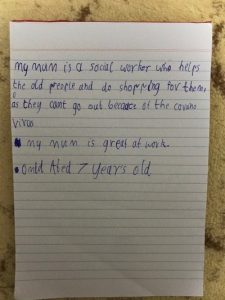 my mum is a social worker who helps
the old people and do shopping for them
as they cant go out because of the corona
virus
my mum is great at work.
7 years old